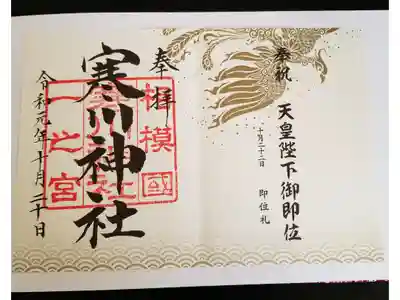 奉祝
天皇陛下御即位
十月二十二日
即位礼
奉拝
相模國
寒川神社
一之宮
令和元年十月二十日